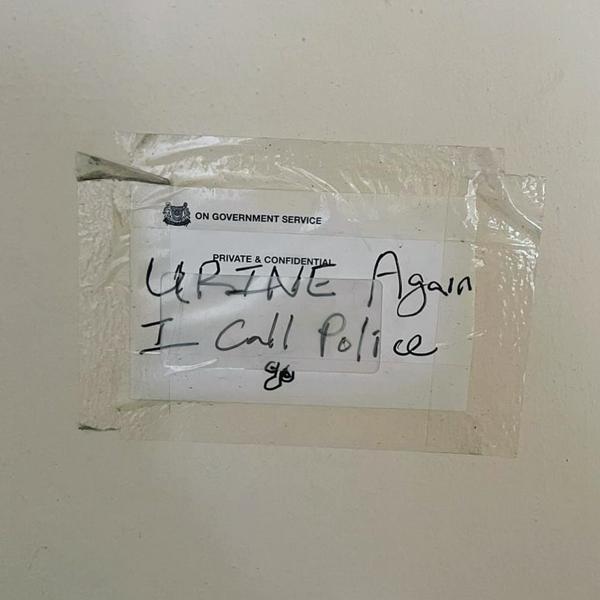 ON GOVERNMENT SERVICE
PRIVATE & CONFIDENTIAL
URINE Again
I Call Police